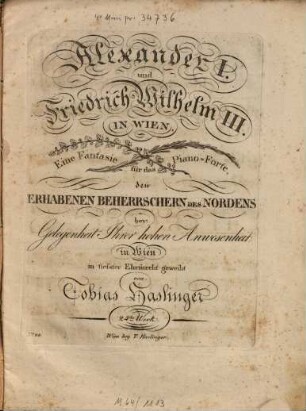 4° Mus. pr. 34736.
Alexander I.
und
Friedrich Wilhelm III.
IN WIEN.
Eine Fantasie für das Piano-Forte,
den
ERHABENEN BEHERRSCHERN DES NORDENS
bey
Gelegenheit Ihrer hohen Anwesenheit
in Wien
in tiefster Ehrfurcht geweiht
von
Tobias Haslinger
24tes Werk.
Wien bey T. Haslinger.
M.64/1113